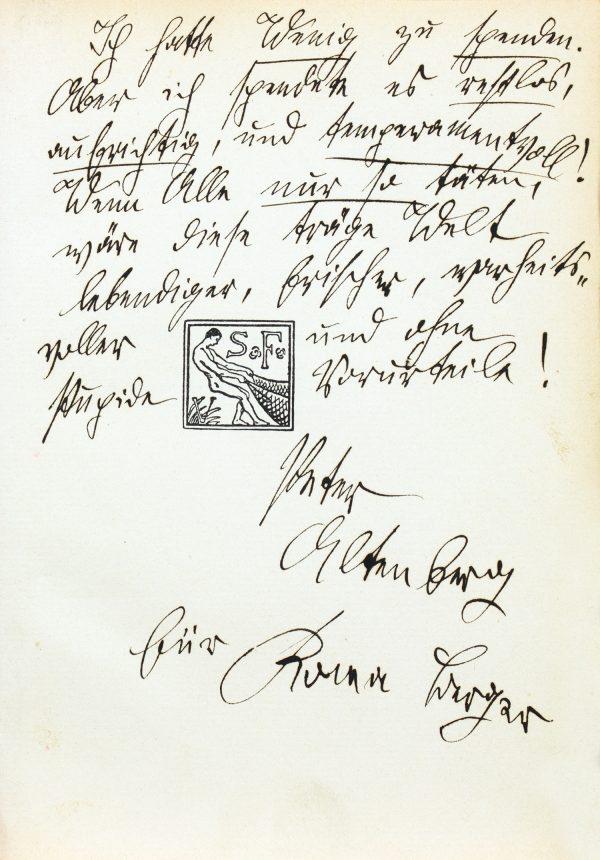 Ich hatte Wenig zu spenden.
Aber ich spendete es restlos,
aufrichtig, und temperamentvoll!
Wenn Alle nur so täten,
wäre diese träge Welt
lebendiger, frischer, warheits-
voller und ohne
stupide Vorurteile!
S. F.
Peter
Altenberg
für Roma Berger